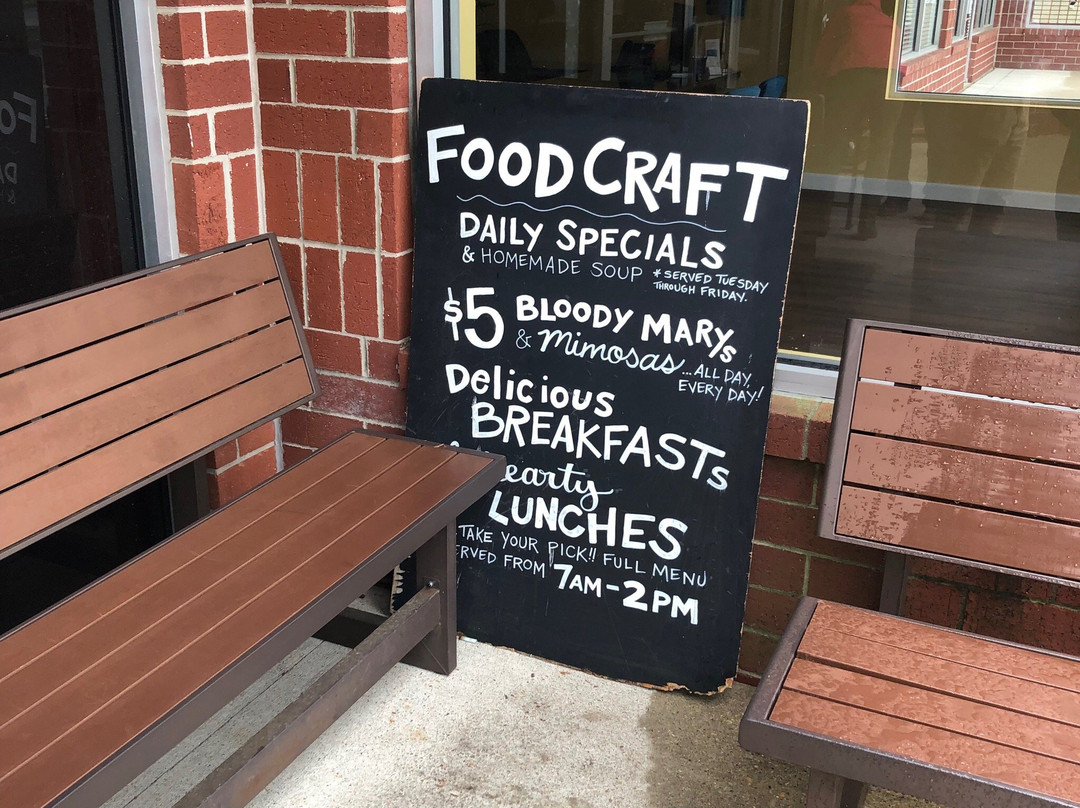 FOOD CRAFT
DAILY SPECIALS
& HOMEMADE SOUP *SERVED TUESDAY
THROUGH FRIDAY.
$5 BLOODY MARYs
& Mimosas ...ALL DAY,
EVERY DAY!
Delicious
BREAKFASTs
earty
LUNCHES
TAKE YOUR PICK!! FULL MENU
ERVED FROM 7AM-2PM